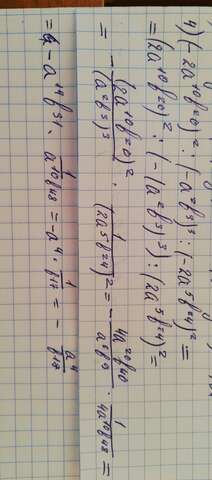 4) (-2a¹⁰b²⁰)² : (-a²b³)³ : (-2a⁵b²⁴)² =
= (2a¹⁰b²⁰)² : (-(a²b³)³) : (2a⁵b²⁴)² =
= - (2a¹⁰b²⁰)² / (a²b³)³ · 1 / (2a⁵b²⁴)² = - 4a²⁰b⁴⁰ / a⁶b⁹ · 1 / 4a¹⁰b⁴⁸ =
= - a¹⁴b³¹ · 1 / a¹⁰b⁴⁸ = -a⁴ · 1 / b¹⁷ = - a⁴ / b¹⁷